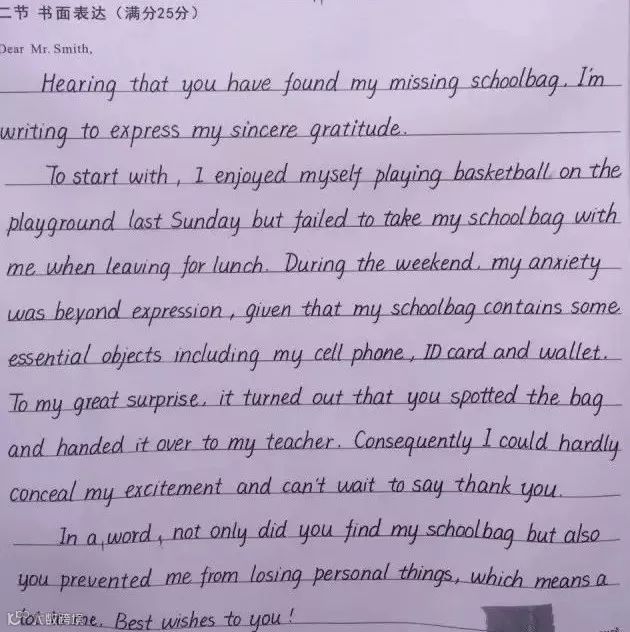 二节 书面表达（满分25分）
Dear Mr. Smith,
Hearing that you have found my missing schoolbag, I'm
writing to express my sincere gratitude.
To start with, I enjoyed myself playing basketball on the
playground last Sunday but failed to take my schoolbag with
me when leaving for lunch. During the weekend, my anxiety
was beyond expression, given that my schoolbag contains some
essential objects including my cell phone, ID card and wallet.
To my great surprise, it turned out that you spotted the bag
and handed it over to my teacher. Consequently I could hardly
conceal my excitement and can't wait to say thank you.
In a word, not only did you find my schoolbag but also
you prevented me from losing personal things, which means a
me. Best wishes to you!